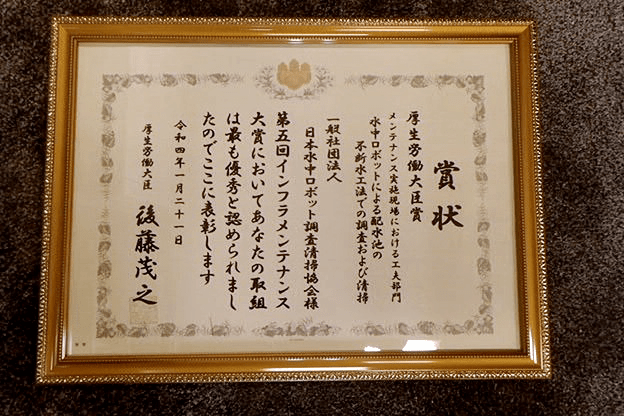 賞状
厚生労働大臣賞
メンテナンス実施現場における工夫部門
水中ロボットによる配水池の
不断水工法での調査および清掃
一般社団法人
日本水中ロボット調査清掃協会様
第五回インフラメンテナンス
大賞においてあなたの取組
は最も優秀と認められまし
たのでここに表彰します
令和四年一月二十一日
厚生労働大臣
後藤茂之